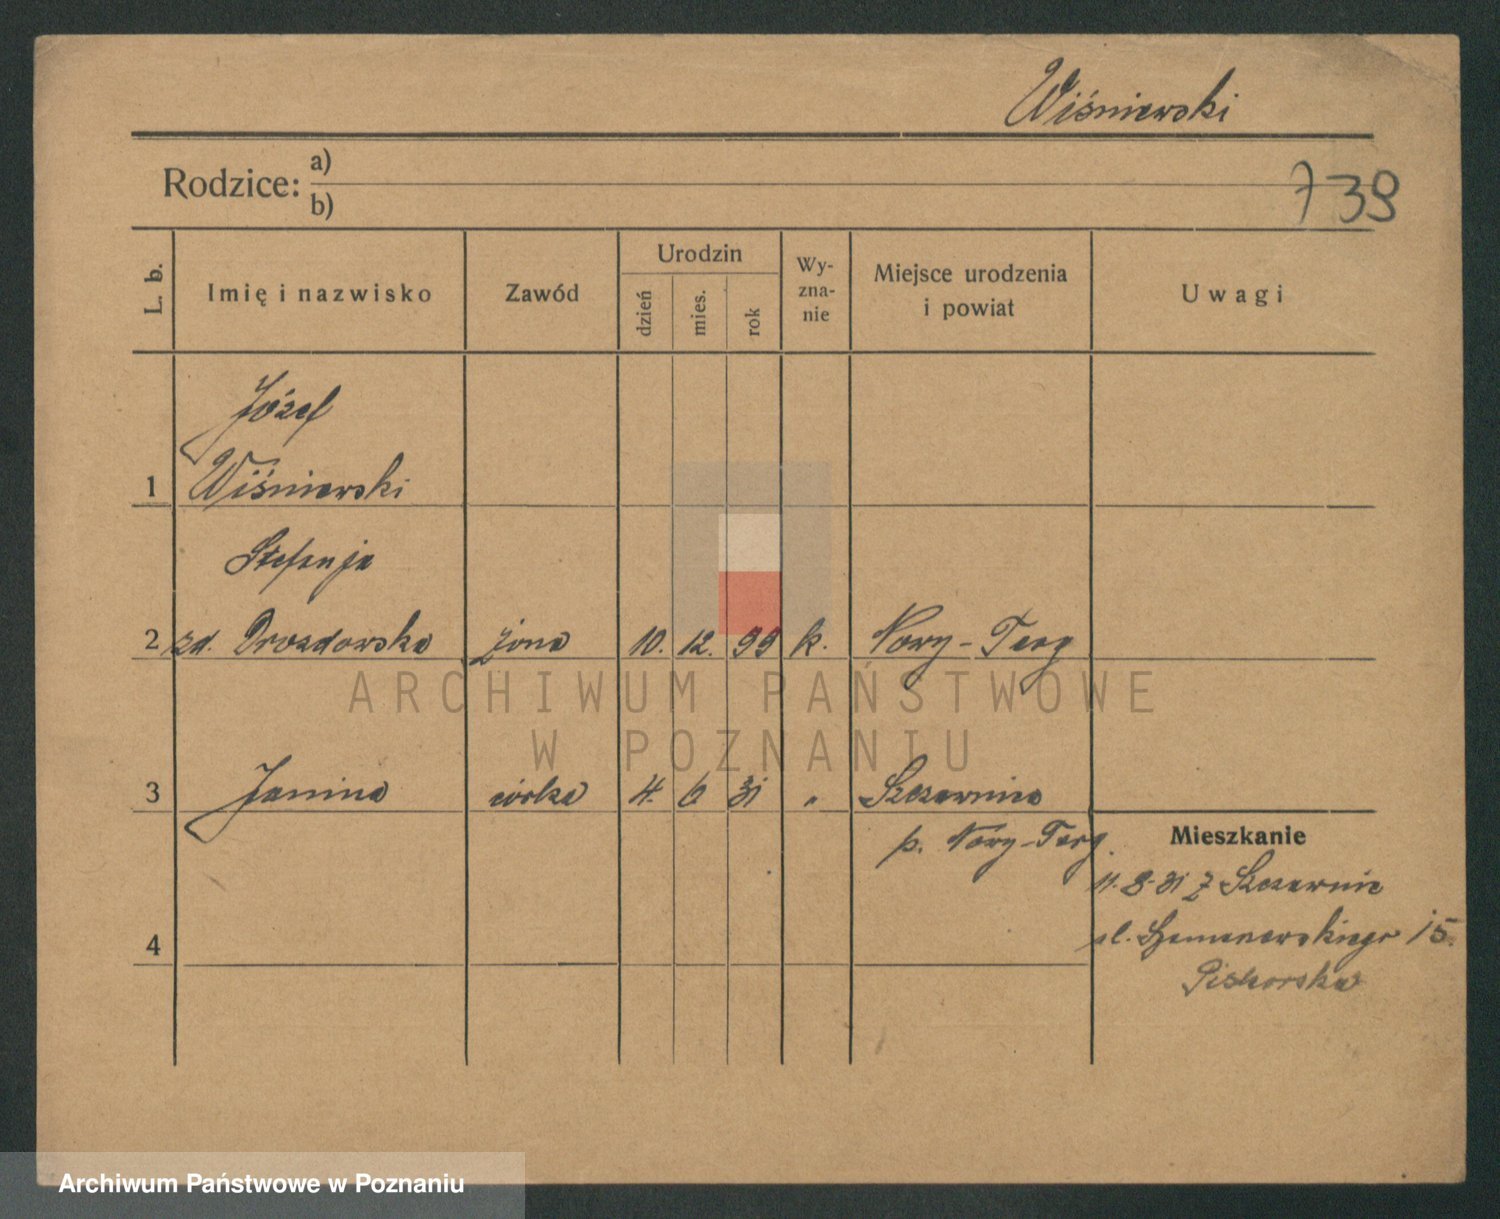 Wiśniewski
Rodzice: a)
b)
739
L. b.
Imię i nazwisko
Zawód
Urodzin
dzień
mies.
rok
Wy-
zna-
nie
Miejsce urodzenia
i powiat
Uwagi
Józef
1 Wiśniewski
Stefanja
2 zd. Drozdowska żona 10. 12. 99 k. Nowy-Targ
3 Janina córka 4. 6 31 " Szczawnica
p. Nowy-Targ
Mieszkanie
11.8.31 z Szczawnic
ul. 15.
Piskorska
4
ARCHIWUM PAŃSTWOWE
W POZNANIU
Archiwum Państwowe w Poznaniu